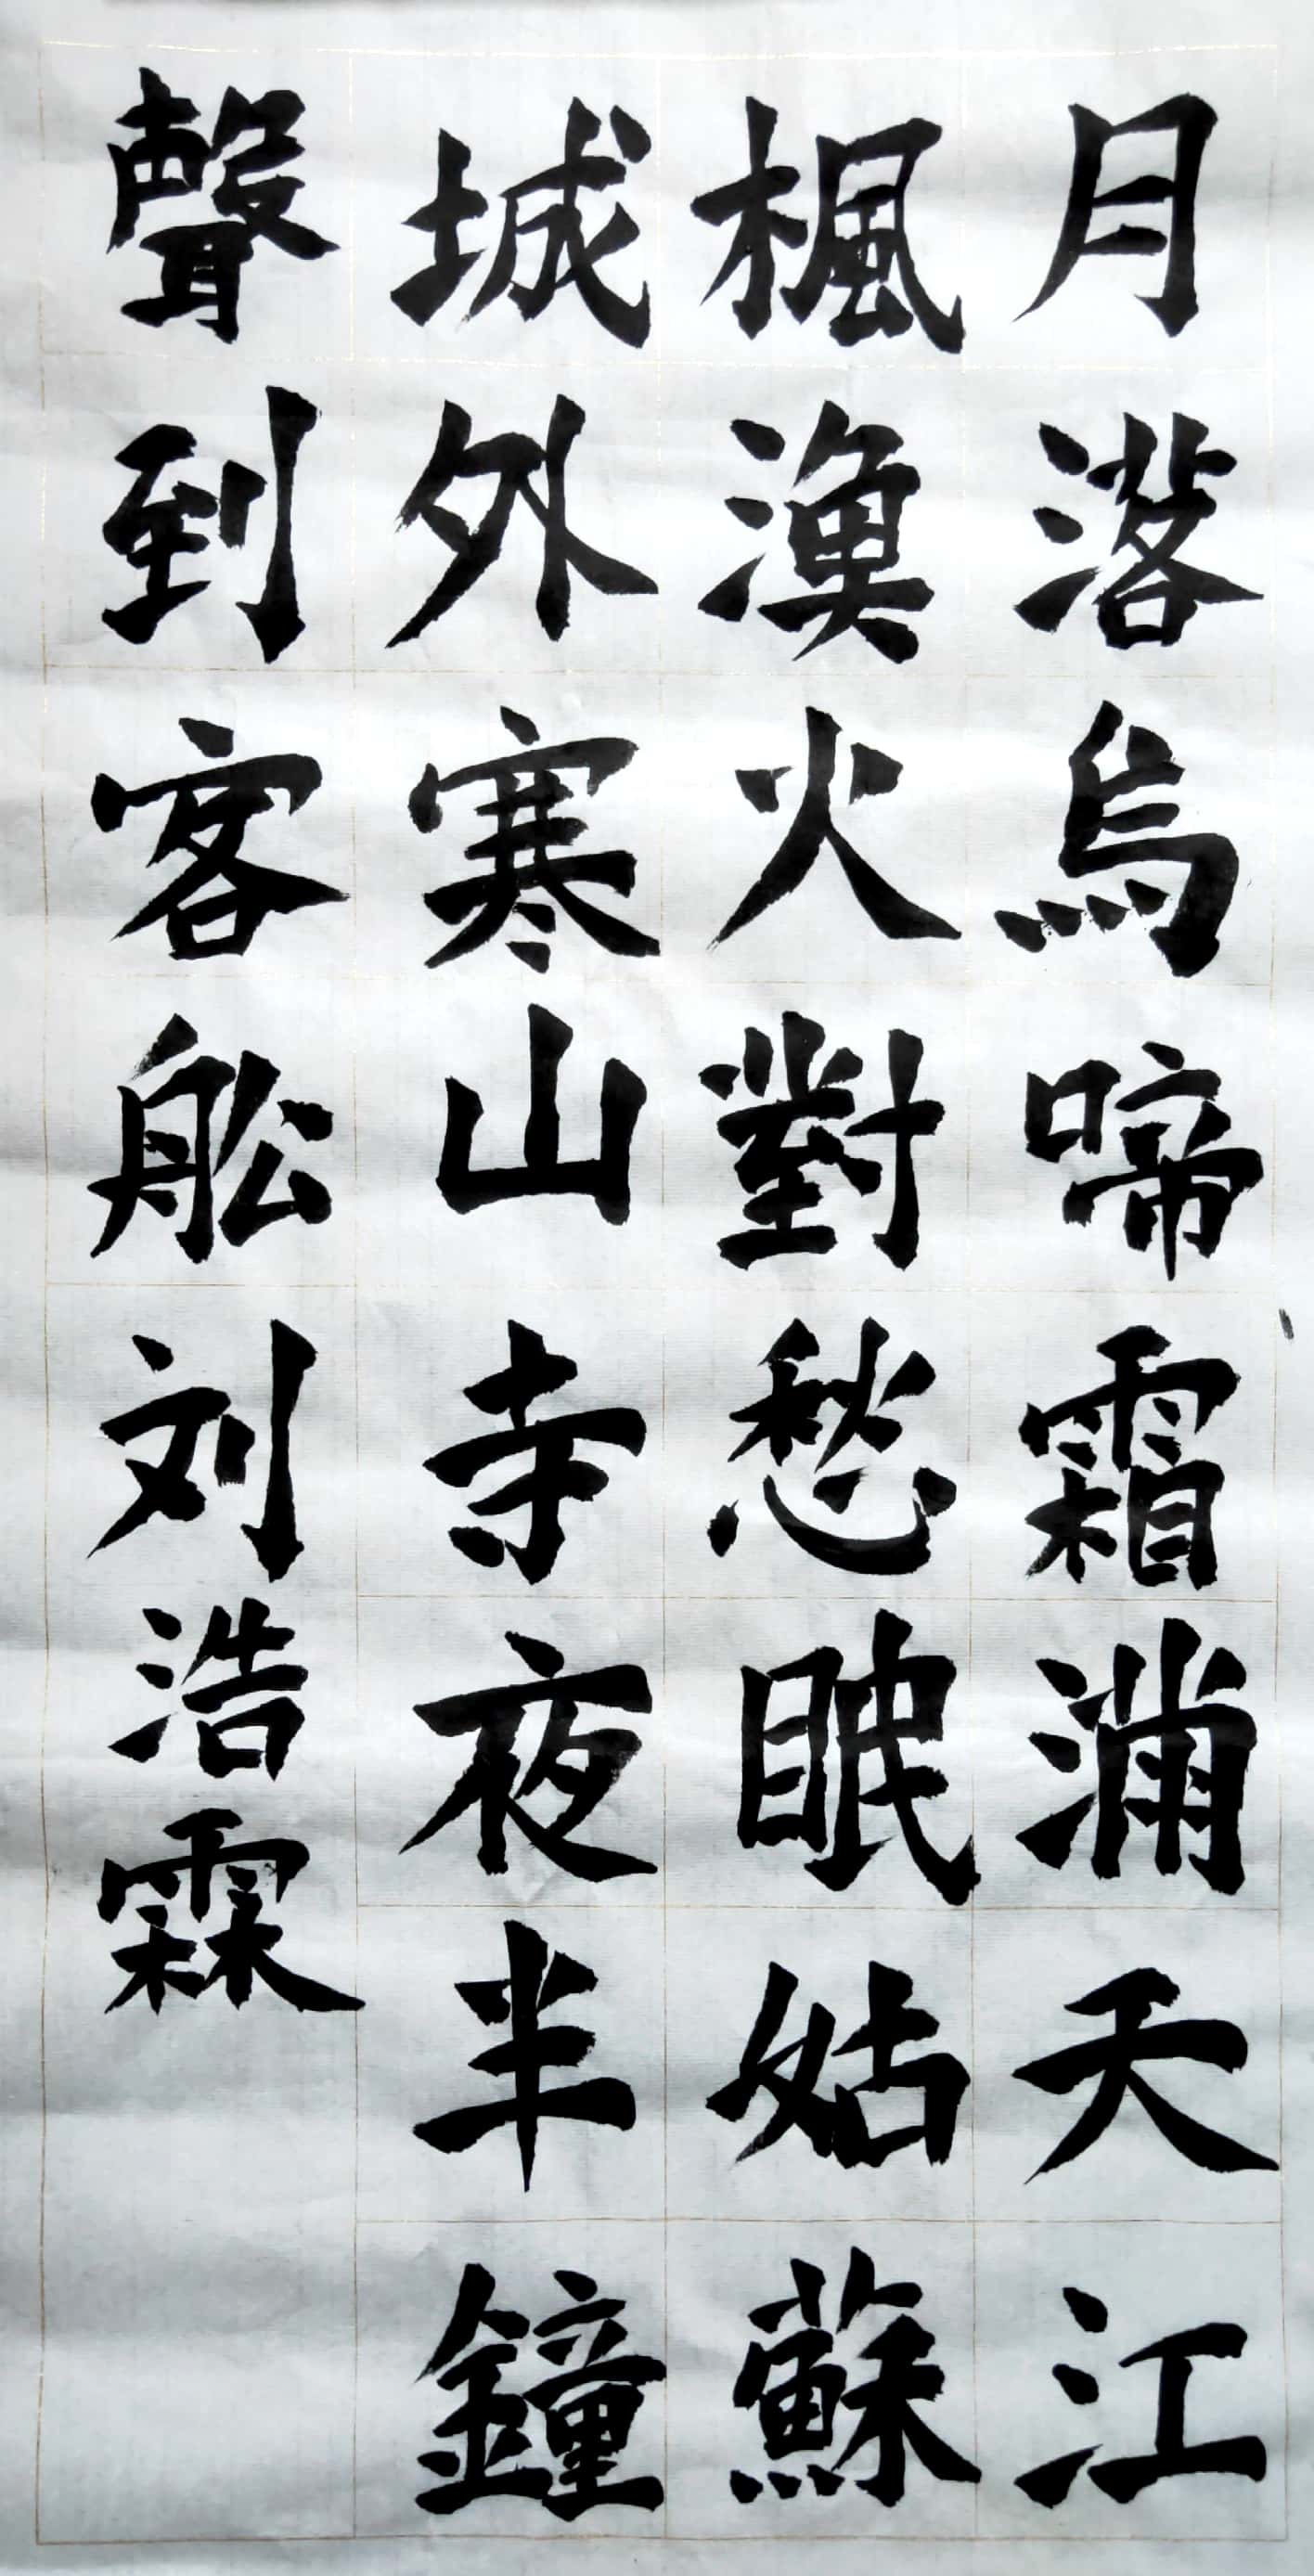 月落烏啼霜滿天江
楓漁火對愁眠姑蘇
城外寒山寺夜半鐘
聲到客舩刘浩霖